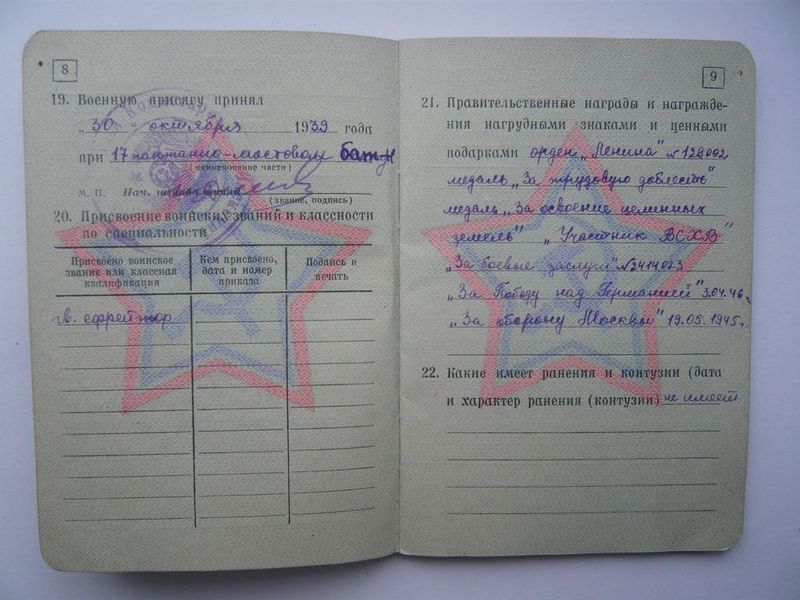 8
19. Военную присягу принял
„30" октября 1939 года
при 17 понтонно-мостовом бат-н
(наименование части)
М. П. Нач. штаба части
(звание, подпись)
20. Присвоение воинских званий и классности
по специальности
Присвоено воинское звание или классная квалификация
Кем присвоено, дата и номер приказа
Подпись и печать
гв. ефрейтор
9
21. Правительственные награды и награжде-
ния нагрудными знаками и ценными
подарками орден „Ленина" №128002
медаль „За трудовую доблесть"
медаль „За освоение целинных
земель" „Участник ВСХВ"
„За боевые заслуги" №2414023
„За Победу над Германией" 3.04.46г.
„За оборону Москвы" 19.05.1945г.
22. Какие имеет ранения и контузии (дата
и характер ранения (контузии) не имеет